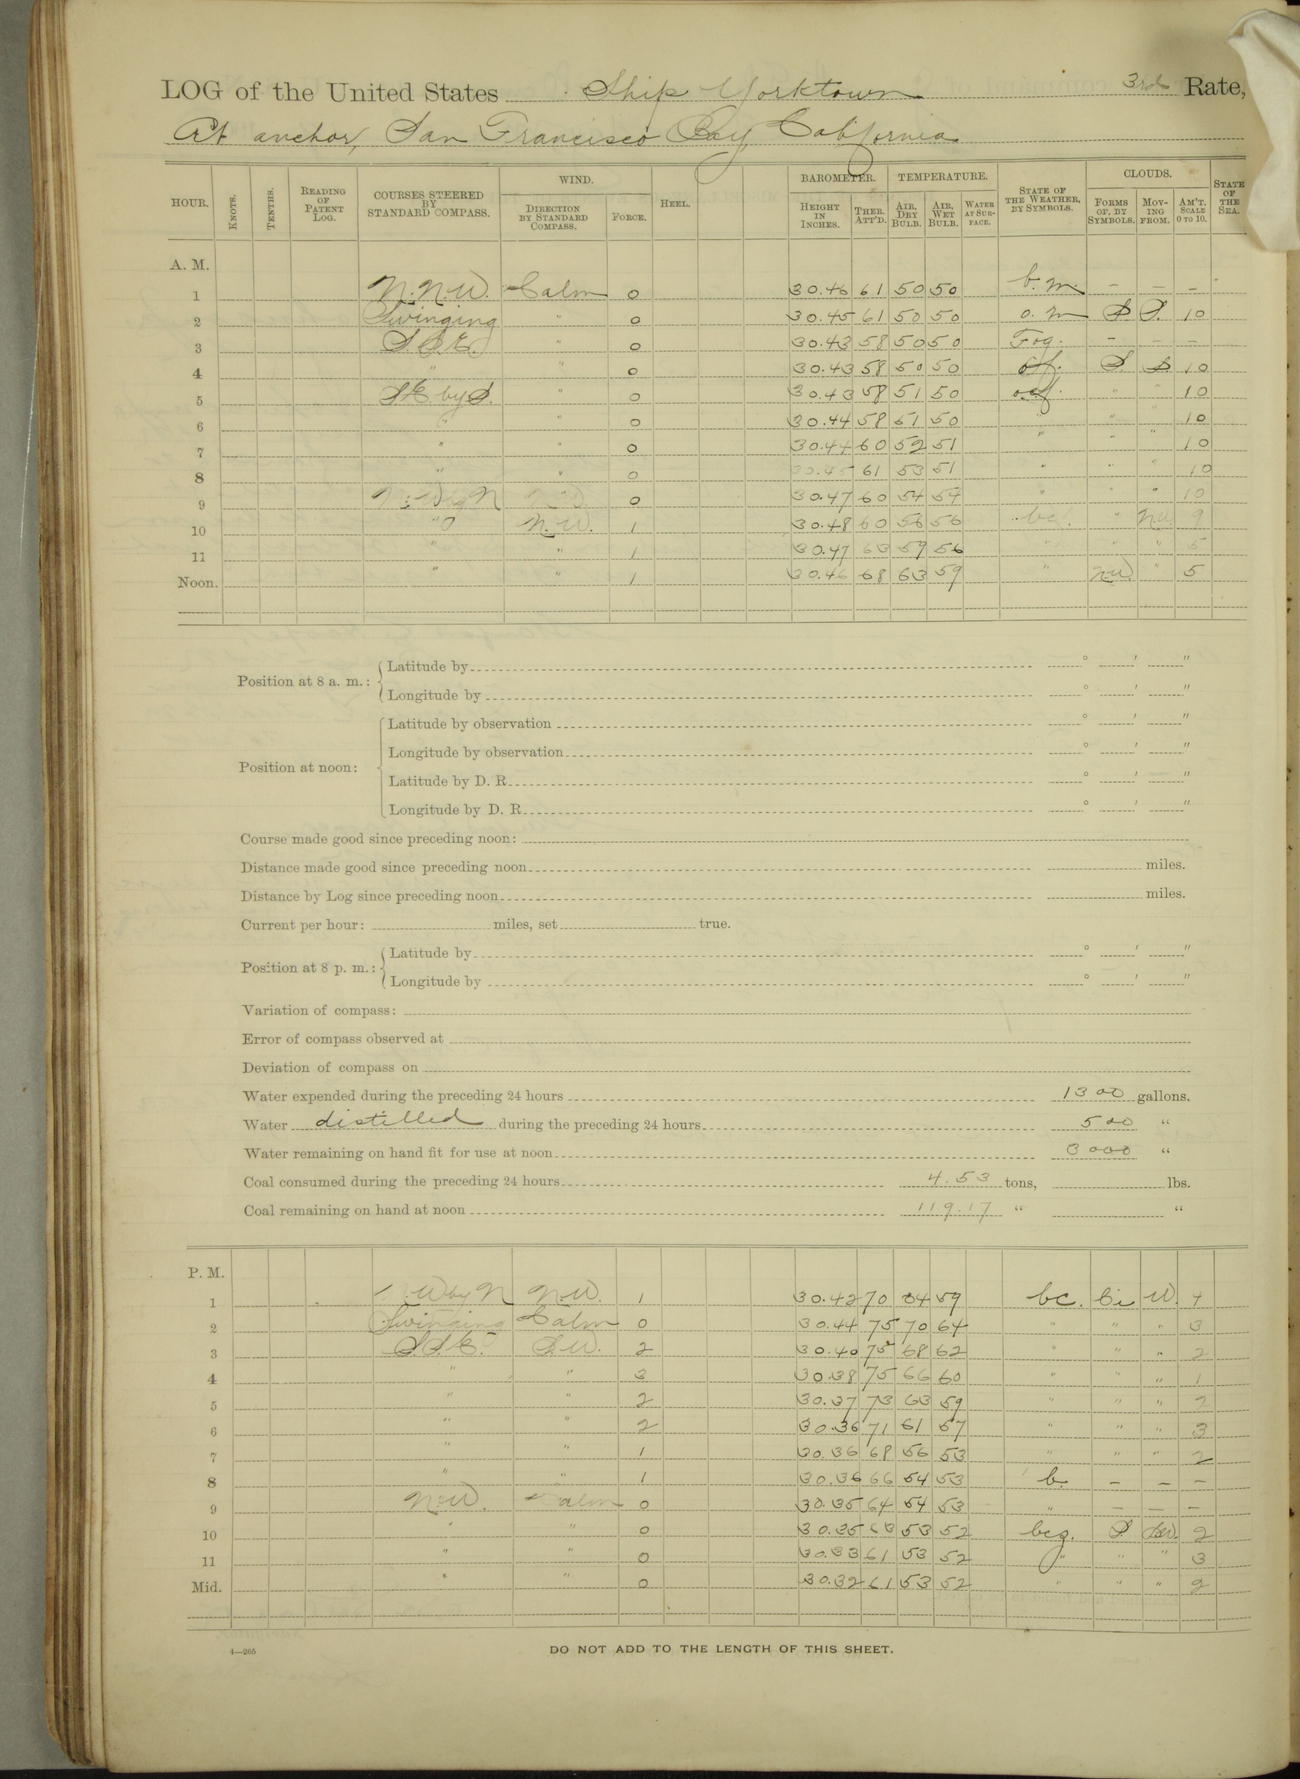 LOG of the United States Ship Yorktown 3rd Rate,
At anchor, San Francisco Bay California
HOUR. KNOTS. TENTHS. READING OF PATENT LOG. COURSES STEERED BY STANDARD COMPASS. WIND. DIRECTION BY STANDARD COMPASS. FORCE. HEEL. BAROMETER. HEIGHT IN INCHES. THER. ATT'D. TEMPERATURE. AIR, DRY BULB. AIR, WET BULB. WATER AT SURFACE. STATE OF THE WEATHER, BY SYMBOLS. CLOUDS. FORMS OF, BY SYMBOLS. MOVING FROM. AM'T. SCALE 0 TO 10. STATE OF THE SEA.
A. M.
1 N.N.W. Calm 0 30.46 61 50 50 b.m — — —
2 Swinging " 0 30.45 61 50 50 o.m S S. 10
3 S.S.E. " 0 30.43 58 50 50 Fog. — — —
4 " " 0 30.43 58 50 50 S. S 10
5 SE by S. " 0 30.43 58 51 50 " 10
6 " " 0 30.44 58 51 50 " " " 10
7 " " 0 30.44 60 52 51 " " " 10
8 " " 0 30.45 61 53 51 " " " 10
9 0 30.47 60 54 54 " " " 10
10 " N.W. 1 30.48 60 56 56 bc. " NW 9
11 " " 1 30.47 63 59 56 " " " 5
Noon. " " 1 30.46 68 63 59 " " 5
Position at 8 a. m.: Latitude by ° ' "
Longitude by ° ' "
Position at noon: Latitude by observation ° ' "
Longitude by observation ° ' "
Latitude by D. R. ° ' "
Longitude by D. R. ° ' "
Course made good since preceding noon:
Distance made good since preceding noon miles.
Distance by Log since preceding noon miles.
Current per hour: miles, set true.
Position at 8 p. m.: Latitude by ° ' "
Longitude by ° ' "
Variation of compass:
Error of compass observed at
Deviation of compass on
Water expended during the preceding 24 hours 1300 gallons.
Water distilled during the preceding 24 hours 500 "
Water remaining on hand fit for use at noon 3000 "
Coal consumed during the preceding 24 hours 4.53 tons, lbs.
Coal remaining on hand at noon 119.17 " "
P. M.
1 N.W by N N.W. 1 30.42 70 64 59 bc. Ci W. 4
2 Swinging Calm 0 30.44 75 70 64 " " " 3
3 S.S.E. S.W. 2 30.40 75 68 62 " " " 2
4 " " 3 30.38 75 66 60 " " " 1
5 " " 2 30.37 73 63 59 " " " 2
6 " " 2 30.36 71 61 57 " " " 3
7 " " 1 30.36 68 56 53 " " " 2
8 " " 1 30.36 66 54 53 b. — — —
9 N.W. Calm 0 30.35 64 54 53 " — — —
10 " " 0 30.35 63 53 52 bcg. S. SW. 2
11 " " 0 30.33 61 53 52 " " " 3
Mid. " " 0 30.32 61 53 52 " " " 2
4—265
DO NOT ADD TO THE LENGTH OF THIS SHEET.